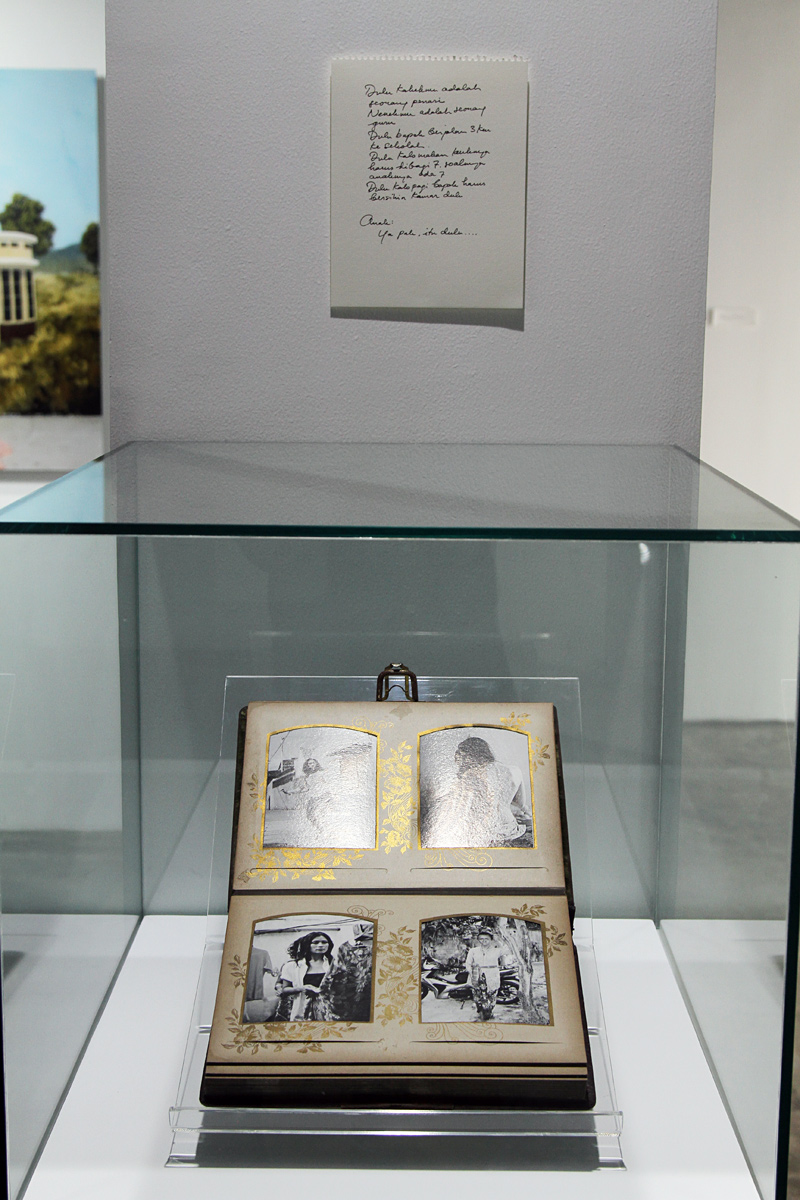 Dulu kakekmu adalah
seorang penari
Nenekmu adalah seorang
guru
Dulu bapak berjalan 3 km
ke sekolah
Dulu kalo makan
harus dibagi 7. soalnya
anaknya ada 7
Dulu kalo pagi bapak harus
bersihin kamar dulu
Anak:
Ya pak, itu dulu....